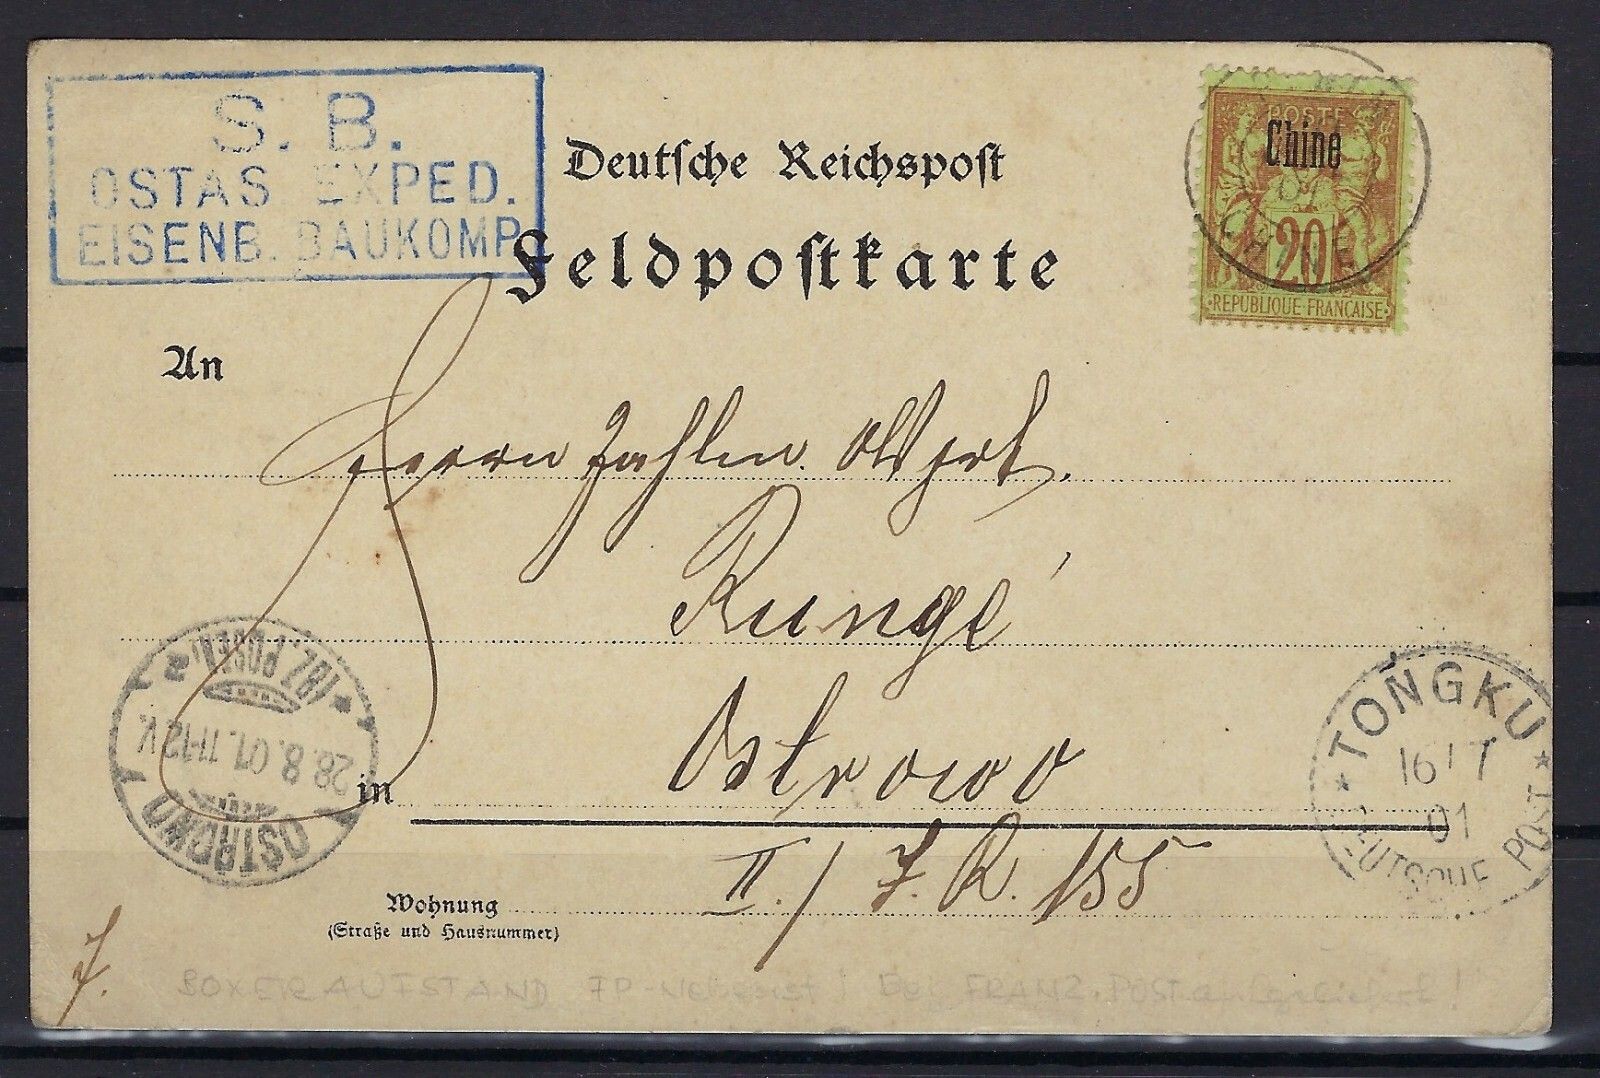 S. B.
OSTAS. EXPED.
EISENB. BAUKOMP.
Deutsche Reichspost
Feldpostkarte
POSTE
Chine
20
CHINE
REPUBLIQUE FRANÇAISE
An
Herrn Zahlm.
Rungé
in Ostrowo
II. / J. R. 155
Wohnung
(Straße und Hausnummer)
TONGKU
16 7
01
DEUTSCHE POST
OSTROWO
28.8.01. 11-12 V.
(BZ. POSEN) 2
J.
BOXERAUFSTAND FP-Nebenpost! Bei FRANZ. POST aufgeliefert!